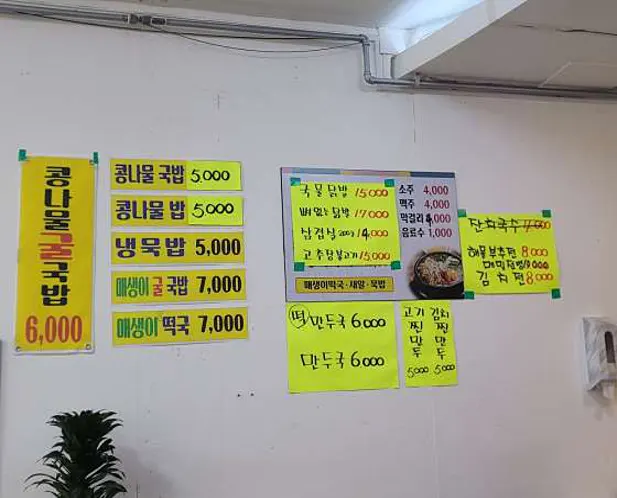 콩나물굴국밥
6,000
콩나물 국밥 5,000
콩나물 밥 5,000
냉묵밥 5,000
매생이 굴 국밥 7,000
매생이 떡국 7,000
국물닭발 15,000
뼈없는닭발 17,000
삼겹살 200g 14,000
고추장불고기 15,000
소주 4,000
맥주 4,000
막걸리 4,000
음료수 1,000
매생이떡국·새알·묵밥
떡만두국 6,000
만두국 6,000
고기찐만두 5000
김치찐만두 5000
잔치국수
해물부추전 8,000
메밀전병
김치전 8,000